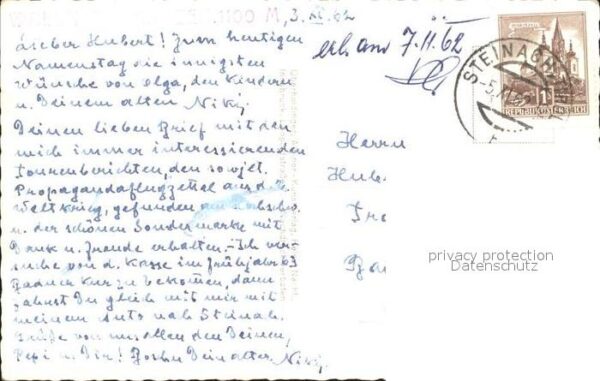 1100 M, 3. XI. 62
Lieber Hubert! Zum heutigen
Namenstag die innigsten
Wünsche von Olga, den Kindern
u. Deinem alten Niki.
Deinen lieben Brief mit den
mich immer interessierenden
Tourenberichten, den sowjet.
Propagandaflugzettel aus d. 2.
Weltkrieg, gefunden am
u. der schönen Sondermarke mit
Dank u. Freude erhalten. – Ich ver-
suche von d. Kasse im Frühjahr 63
Kur zu bekommen, dann
fahrst Du gleich mit mir mit
meinem Auto nach Steinach.
Grüße von uns allen den Deinen,
Pepi u. Dir! Dein alter Niki
erh. am 7.11.62
STEINACH
REPUBLIK ÖSTERREICH
Herrn
Hub
privacy protection
Datenschutz